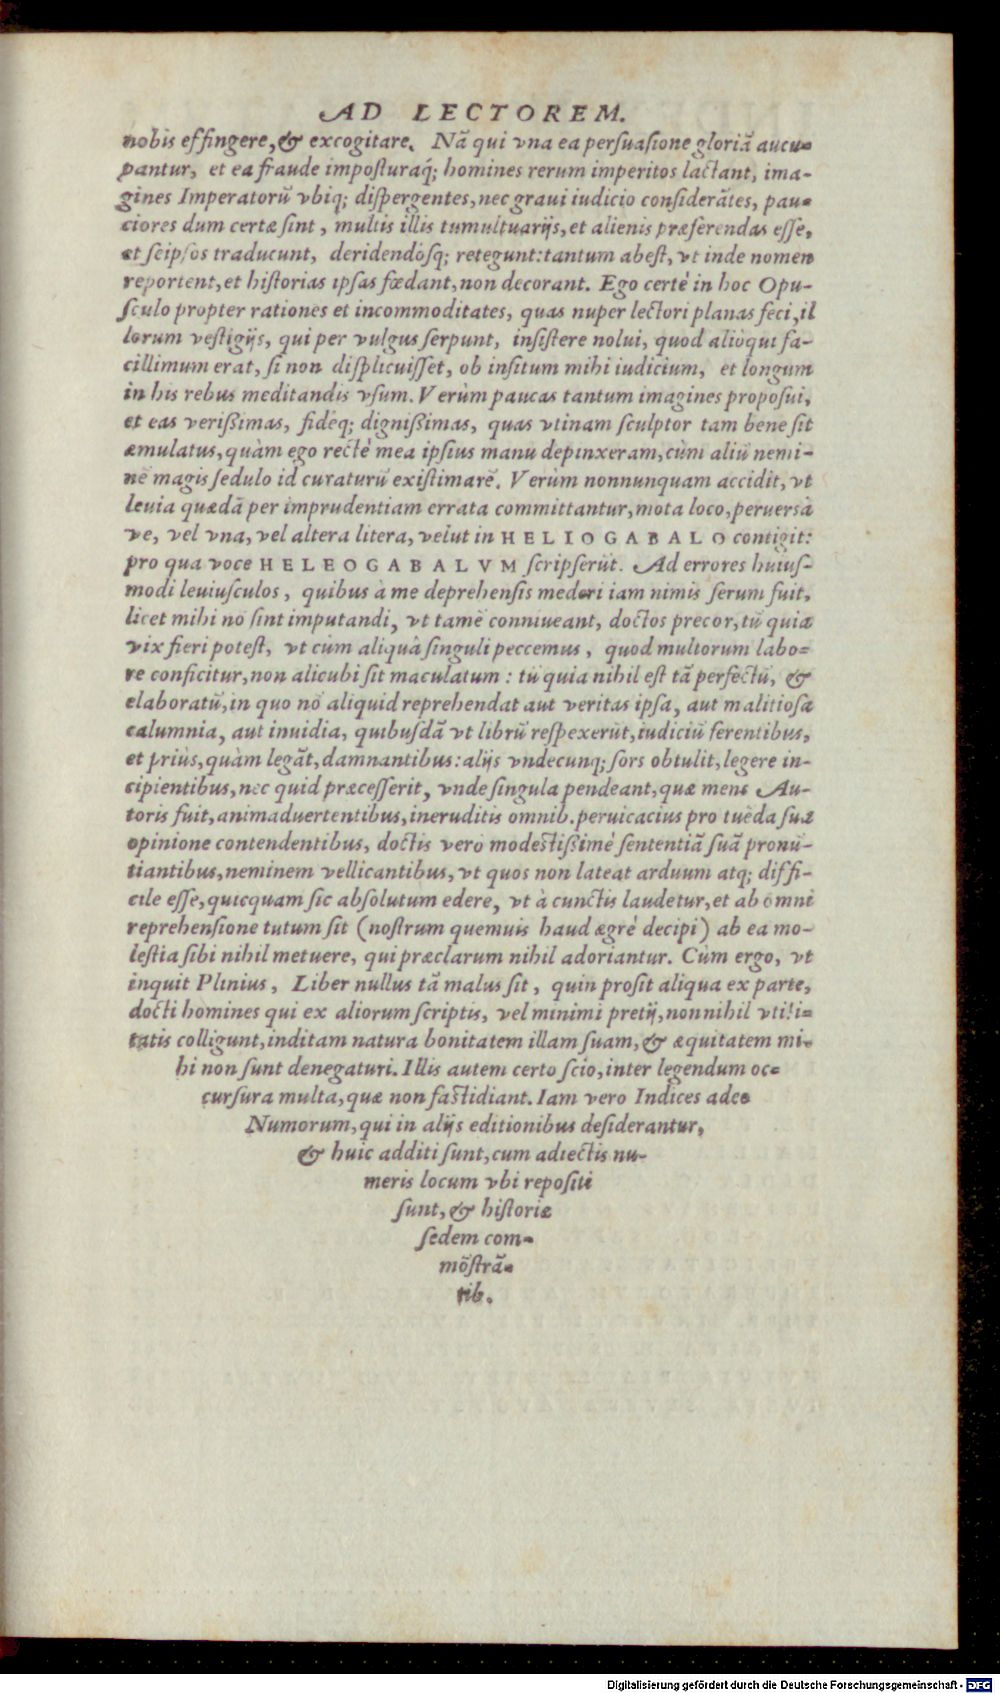 AD LECTOREM.
nobis effingere, & excogitare. Nā qui vna ea persuasione gloriā aucu-
pantur, et ea fraude imposturaq́; homines rerum imperitos lactant, ima-
gines Imperatorū vbiq; dispergentes, nec graui iudicio considerātes, pau-
ciores dum certæ sint, multis illis tumultuarijs, et alienis præferendas esse,
et seipsos traducunt, deridendosq; retegunt: tantum abest, vt inde nomen
reportent, et historias ipsas fœdant, non decorant. Ego certè in hoc Opu-
sculo propter rationes et incommoditates, quas nuper lectori planas feci, il
lorum vestigijs, qui per vulgus serpunt, insistere nolui, quod alioqui fa-
cillimum erat, si non displicuisset, ob insitum mihi iudicium, et longum
in his rebus meditandis vsum. Verùm paucas tantum imagines proposui,
et eas verißimas, fideq; dignißimas, quas vtinam sculptor tam bene sit
æmulatus, quàm ego rectè mea ipsius manu depinxeram, cùm aliū nemi-
nē magis sedulo id curaturū existimarē. Verùm nonnunquam accidit, vt
leuia quædā per imprudentiam errata committantur, mota loco, peruersà
ve, vel vna, vel altera litera, velut in HELIOGABALO contigit:
pro qua voce HELEOGABALVM scripserūt. Ad errores huius-
modi leuiusculos, quibus à me deprehensis mederi iam nimis serum fuit,
licet mihi nō sint imputandi, vt tamē conniueant, doctos precor, tū quia
vix fieri potest, vt cùm aliquà singuli peccemus, quod multorum labo-
re conficitur, non alicubi sit maculatum: tū quia nihil est tā perfectū, &
elaboratū, in quo nō aliquid reprehendat aut veritas ipsa, aut malitiosa
calumnia, aut inuidia, quibusdā vt librū respexerūt, iudiciū ferentibus,
et priùs, quàm legāt, damnantibus: alijs vndecunq; sors obtulit, legere in-
cipientibus, nec quid præcesserit, vnde singula pendeant, quæ mens Au-
toris fuit, animaduertentibus, ineruditis omnib. peruicacius pro tuēda sua
opinione contendentibus, doctis vero modestißimè sententiā suā pronū-
tiantibus, neminem vellicantibus, vt quos non lateat arduum atq; diffi-
cile esse, quicquam sic absolutum edere, vt à cunctis laudetur, et ab omni
reprehensione tutum sit (nostrum quemuis haud ægrè decipi) ab ea mo-
lestia sibi nihil metuere, qui præclarum nihil adoriantur. Cùm ergo, vt
inquit Plinius, Liber nullus tā malus sit, quin prosit aliqua ex parte,
docti homines qui ex aliorum scriptis, vel minimi pretij, nonnihil vtili-
tatis colligunt, inditam natura bonitatem illam suam, & æquitatem mi-
hi non sunt denegaturi. Illis autem certo scio, inter legendum oc-
cursura multa, quæ non fastidiant. Iam vero Indices adeo
Numorum, qui in alijs editionibus desiderantur,
& huic additi sunt, cum adiectis nu-
meris locum vbi repositi
sunt, & historiæ
sedem com-
mōstrā-
tib.
Digitalisierung gefördert durch die Deutsche Forschungsgemeinschaft - DFG